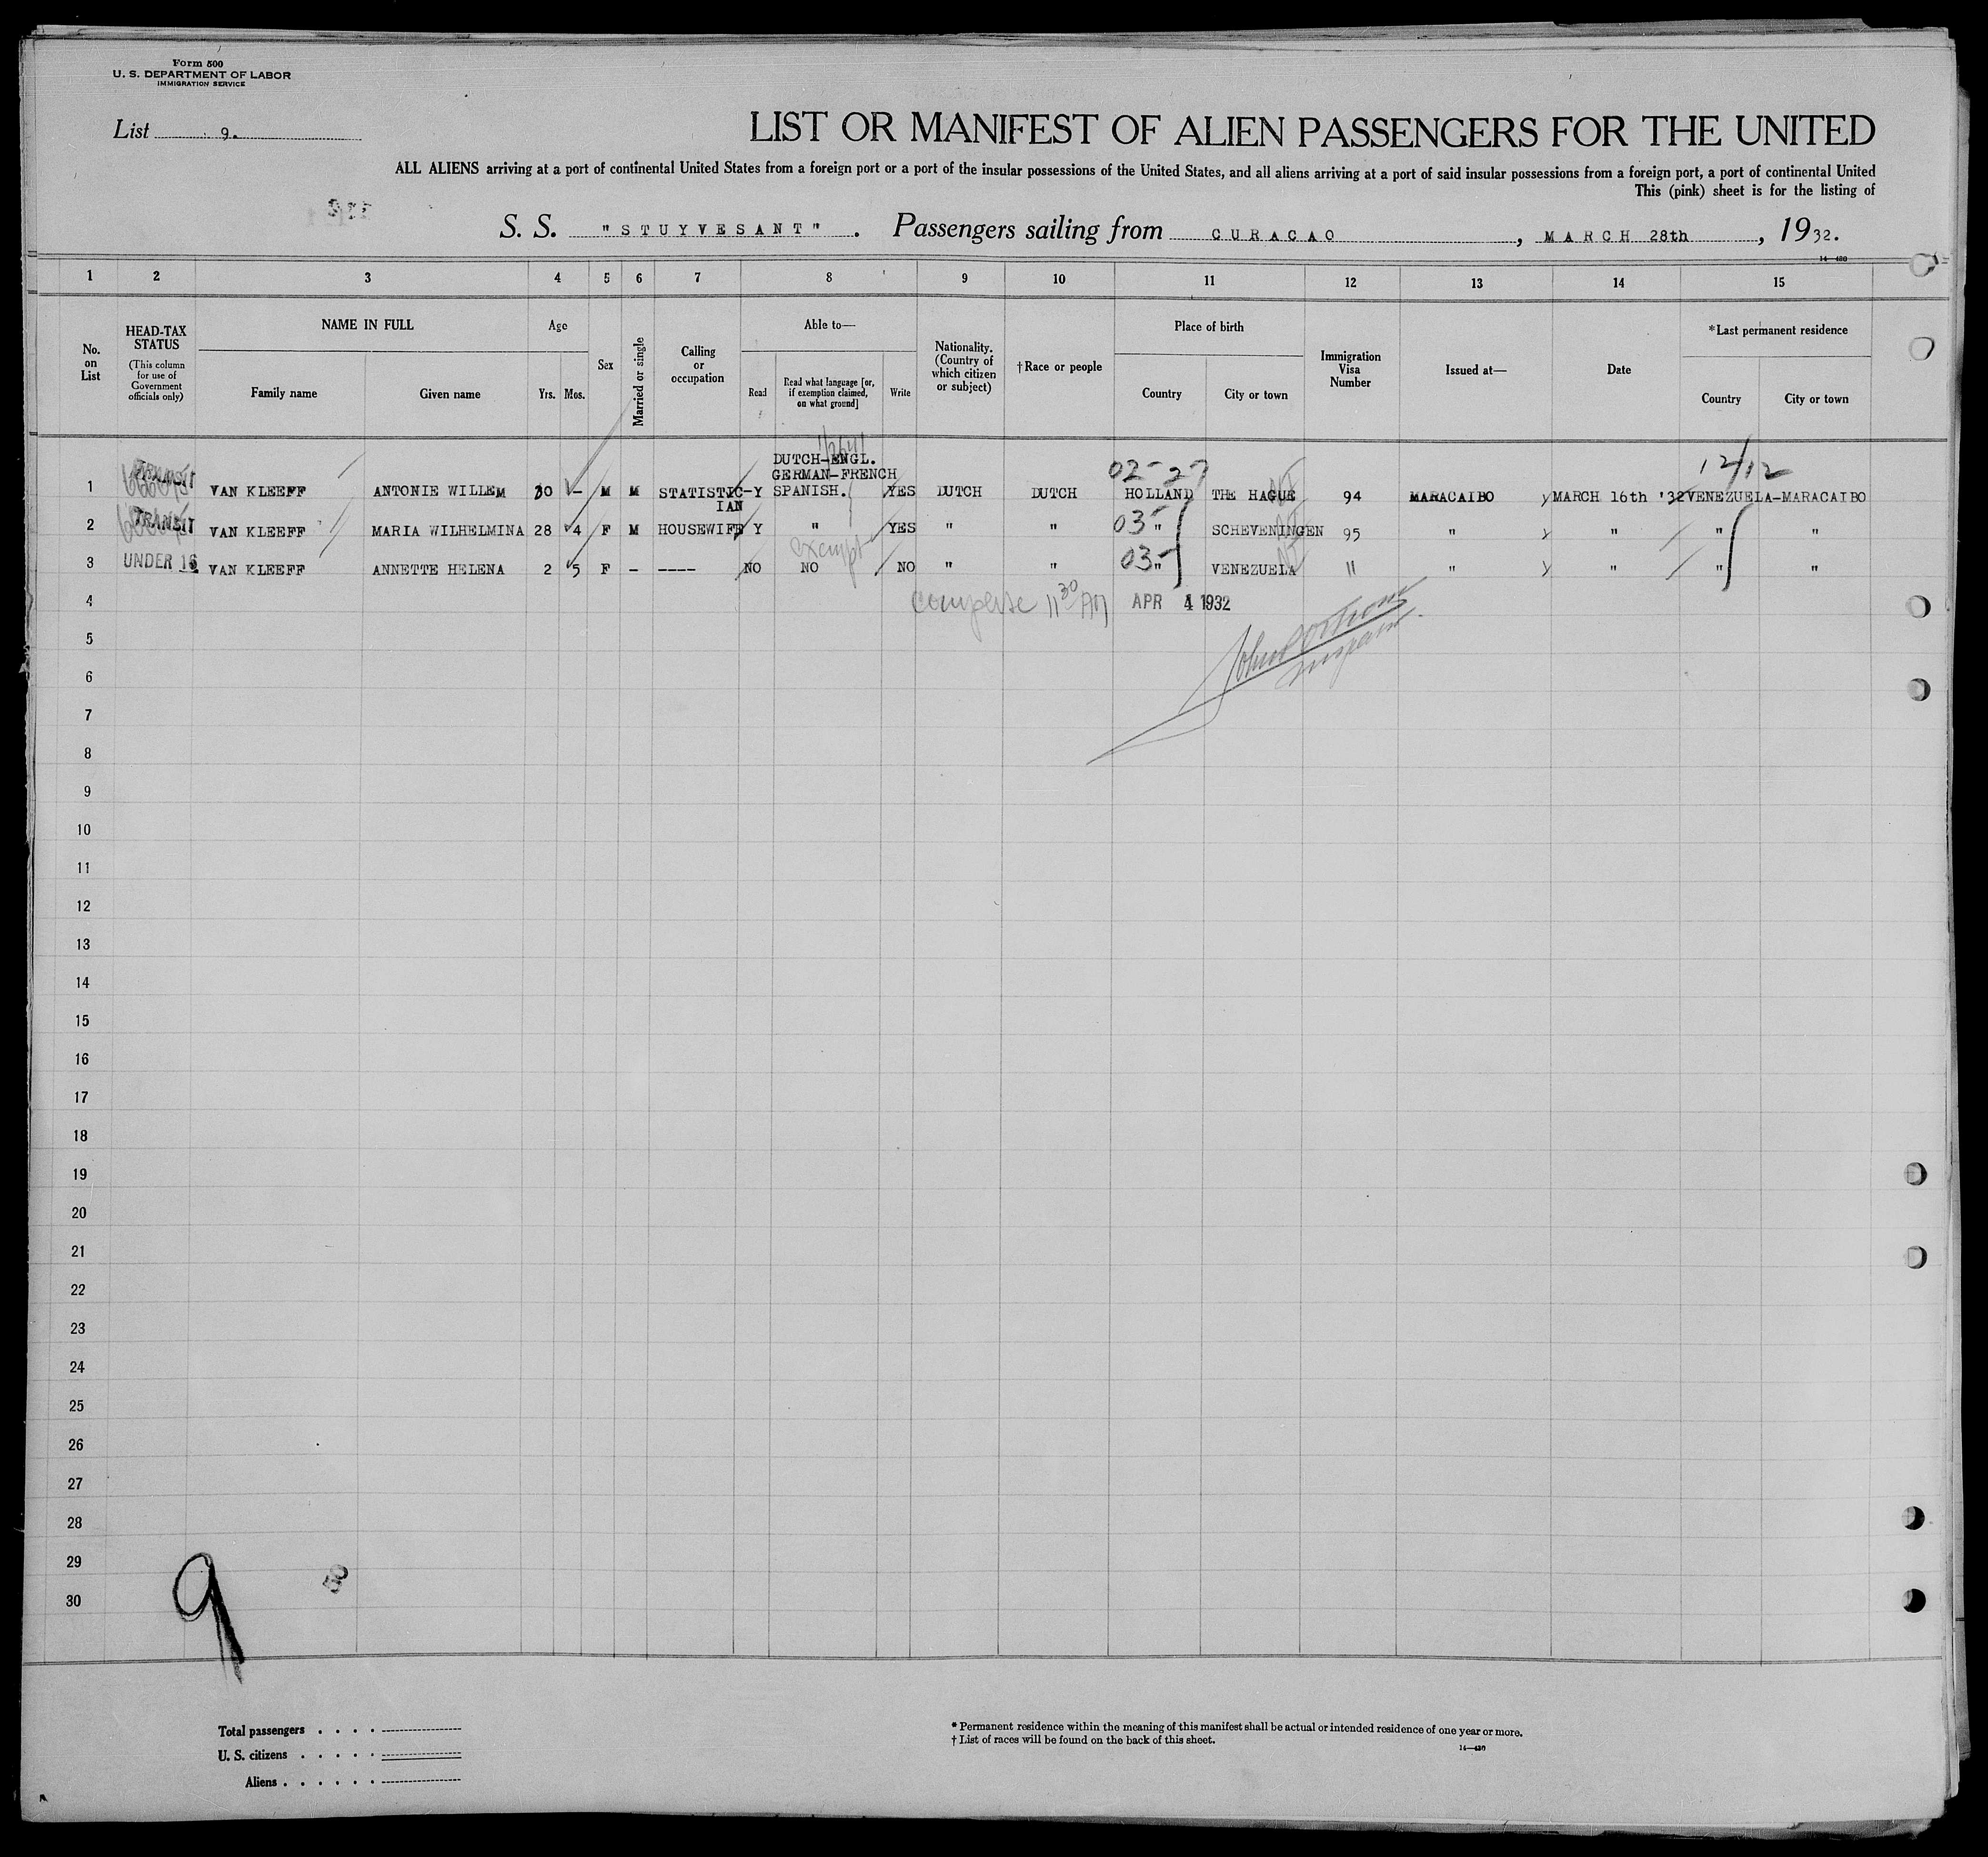 Form 500
U. S. DEPARTMENT OF LABOR
IMMIGRATION SERVICE
List 9.
LIST OR MANIFEST OF ALIEN PASSENGERS FOR THE UNITED
ALL ALIENS arriving at a port of continental United States from a foreign port or a port of the insular possessions of the United States, and all aliens arriving at a port of said insular possessions from a foreign port, a port of continental United
This (pink) sheet is for the listing of
S. S. "STUYVESANT". Passengers sailing from CURACAO, MARCH 28th, 1932.
14—480
1 2 3 4 5 6 7 8 9 10 11 12 13 14 15
No. on List
HEAD-TAX STATUS
(This column for use of Government officials only)
NAME IN FULL
Family name
Given name
Age
Yrs. Mos.
Sex
Married or single
Calling or occupation
Able to—
Read
Read what language [or, if exemption claimed, on what ground]
Write
Nationality. (Country of which citizen or subject)
†Race or people
Place of birth
Country
City or town
Immigration Visa Number
Issued at—
Date
*Last permanent residence
Country
City or town
DUTCH-ENGL.
GERMAN-FRENCH
02-27
12/12
1 TRANSIT VAN KLEEFF ANTONIE WILLEM 30 - M M STATISTIC-Y SPANISH. YES DUTCH DUTCH HOLLAND THE HAGUE 94 MARACAIBO MARCH 16th '32 VENEZUELA-MARACAIBO
IAN
2 TRANSIT VAN KLEEFF MARIA WILHELMINA 28 4 F M HOUSEWIFE Y " YES " " 03 " SCHEVENINGEN 95 " " " "
exempt
3 UNDER 16 VAN KLEEFF ANNETTE HELENA 2 5 F - ---- NO NO NO " " 03 " VENEZUELA " " " " "
4 11 30 AM APR 4 1932
5
6
7
8
9
10
11
12
13
14
15
16
17
18
19
20
21
22
23
24
25
26
27
28
29
30
9
Total passengers . . . .
U. S. citizens . . . . .
Aliens . . . . . .
* Permanent residence within the meaning of this manifest shall be actual or intended residence of one year or more.
† List of races will be found on the back of this sheet.
14—480